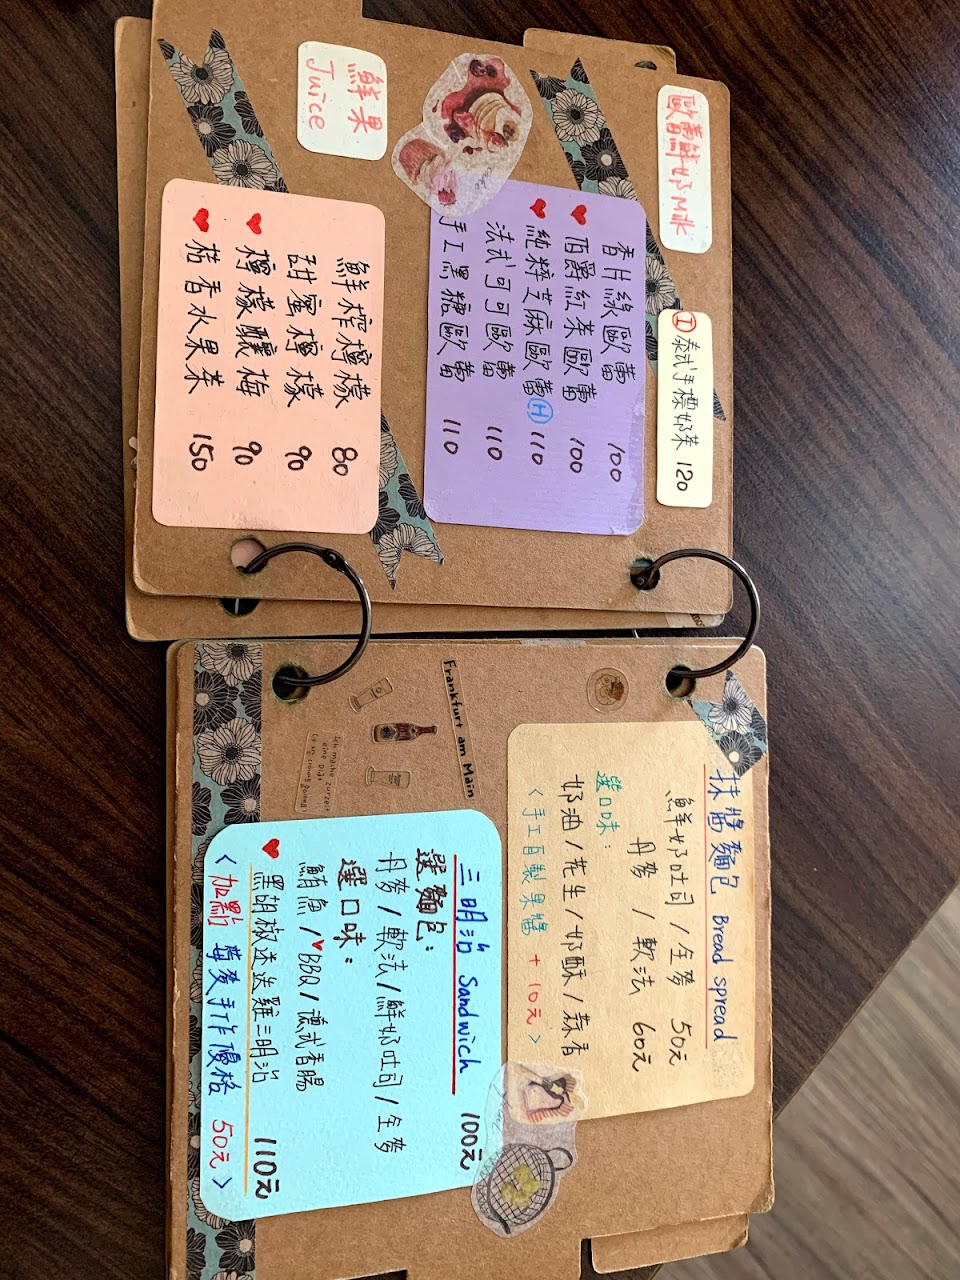 歐蕾鮮奶 Milk
Ⓘ 泰式手標奶茶 120
香片綠歐蕾 100
♥ 伯爵紅茶歐蕾 100
♥ 純粹芝麻歐蕾 Ⓗ 110
法式可可歐蕾 110
手工黑糖歐蕾 110
鮮果
Juice
鮮榨檸檬 80
甜蜜檸檬 90
♥ 檸檬釀梅 90
♥ 桔香水果茶 150
抹醬麵包 Bread spread
鮮奶吐司 / 全麥 50元
丹麥 / 軟法 60元
選口味:
奶油 / 花生 / 奶酥 / 蒜香
〈手工自製果醬 + 10元〉
Frankfurt am Main
Ich mache zurzeit
eine Diät
三明治 Sandwich 100元
選麵包:
丹麥 / 軟法 / 鮮奶吐司 / 全麥
選口味:
鮪魚 / ♥BBQ / 德式香腸
♥ 黑胡椒迷迭雞三明治 110元
〈加點 蕁麥手作優格 50元〉